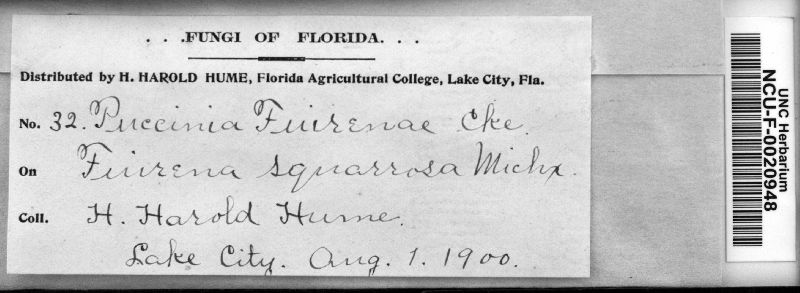 . . .FUNGI OF FLORIDA. . .
Distributed by H. HAROLD HUME, Florida Agricultural College, Lake City, Fla.
No. 32. Puccinia Fuirenae Cke.
On Fuirena squarrosa Michx.
Coll. H. Harold Hume.
Lake City. Aug. 1. 1900.
UNC Herbarium
NCU-F-0020948